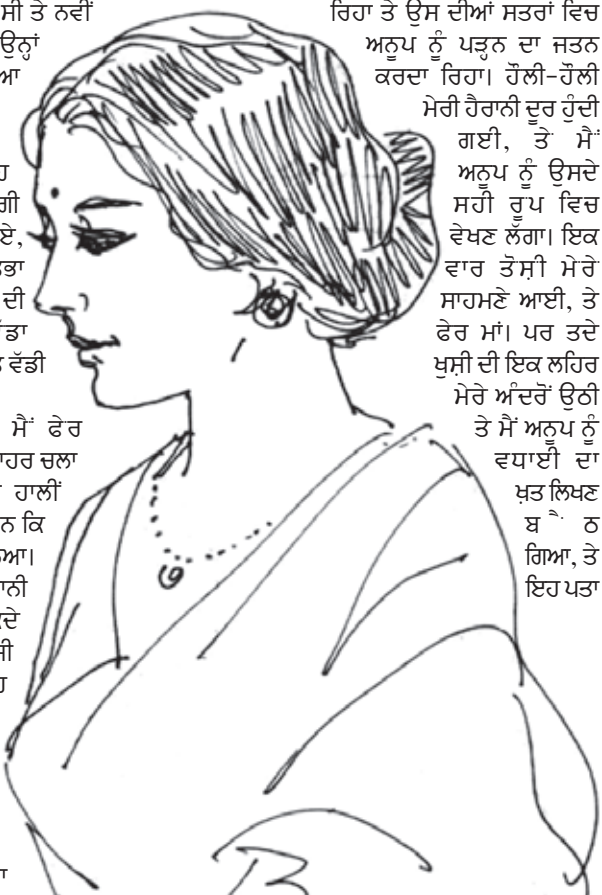 ਸੀ ਤੇ ਨਵੀਂ
ਉਨ੍ਹਾਂ
ਦੀ
ਵੱਡੀ
ਮੈਂ ਫੇਰ
ਚਲਾ
ਹਾਲੀਂ
ਕਿ
ਰਿਹਾ ਤੇ ਉਸ ਦੀਆਂ ਸਤਰਾਂ ਵਿਚ
ਅਨੂਪ ਨੂੰ ਪੜ੍ਹਨ ਦਾ ਜਤਨ
ਕਰਦਾ ਰਿਹਾ। ਹੌਲੀ-ਹੌਲੀ
ਮੇਰੀ ਹੈਰਾਨੀ ਦੂਰ ਹੁੰਦੀ
ਗਈ, ਤੇ ਮੈਂ
ਅਨੂਪ ਨੂੰ ਉਸਦੇ
ਸਹੀ ਰੂਪ ਵਿਚ
ਵੇਖਣ ਲੱਗਾ। ਇਕ
ਵਾਰ ਤੋਸ਼ੀ ਮੇਰੇ
ਸਾਹਮਣੇ ਆਈ, ਤੇ
ਫੇਰ ਮਾਂ। ਪਰ ਤਦੇ
ਖੁਸ਼ੀ ਦੀ ਇਕ ਲਹਿਰ
ਮੇਰੇ ਅੰਦਰੋਂ ਉਠੀ
ਤੇ ਮੈਂ ਅਨੂਪ ਨੂੰ
ਵਧਾਈ ਦਾ
ਖ਼ਤ ਲਿਖਣ
ਬੈਠ
ਗਿਆ, ਤੇ
ਇਹ ਪਤਾ